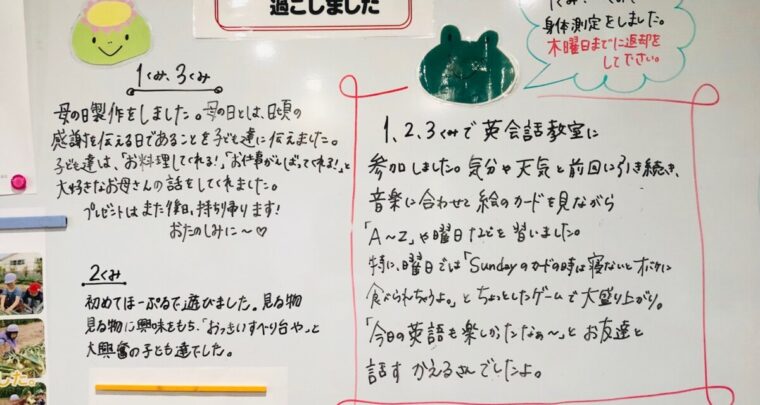 過ごしました
身体測定をしました。
木曜日までに返却を
して下さい。
1くみ、3くみ
母の日製作をしました。母の日とは、日頃の
感謝を伝える日であることを子ども達に伝えました。
子ども達は、「お料理してくれる!」「お仕事がんばってくれる!」と
大好きなお母さんの話をしてくれました。
プレゼントはまた後日、持ち帰ります!
おたのしみに〜♡
2くみ
初めてほーぷるで遊びました。見る物
見る物に興味をもち、「おっきいすべり台や〜」と
大興奮の子ども達でした。
1、2、3くみで英会話教室に
参加しました。気分や天気と前回に引き続き、
音楽に合わせて絵のカードを見ながら
「A〜Z」や曜日などを習いました。
特に、曜日では「Sundayのカードの時は寝ないと
食べられちゃうよ。」とちょっとしたゲームで大盛り上がり。
「今日の英語も楽しかったなぁ〜」とお友達と
話すかえるさんでしたよ。